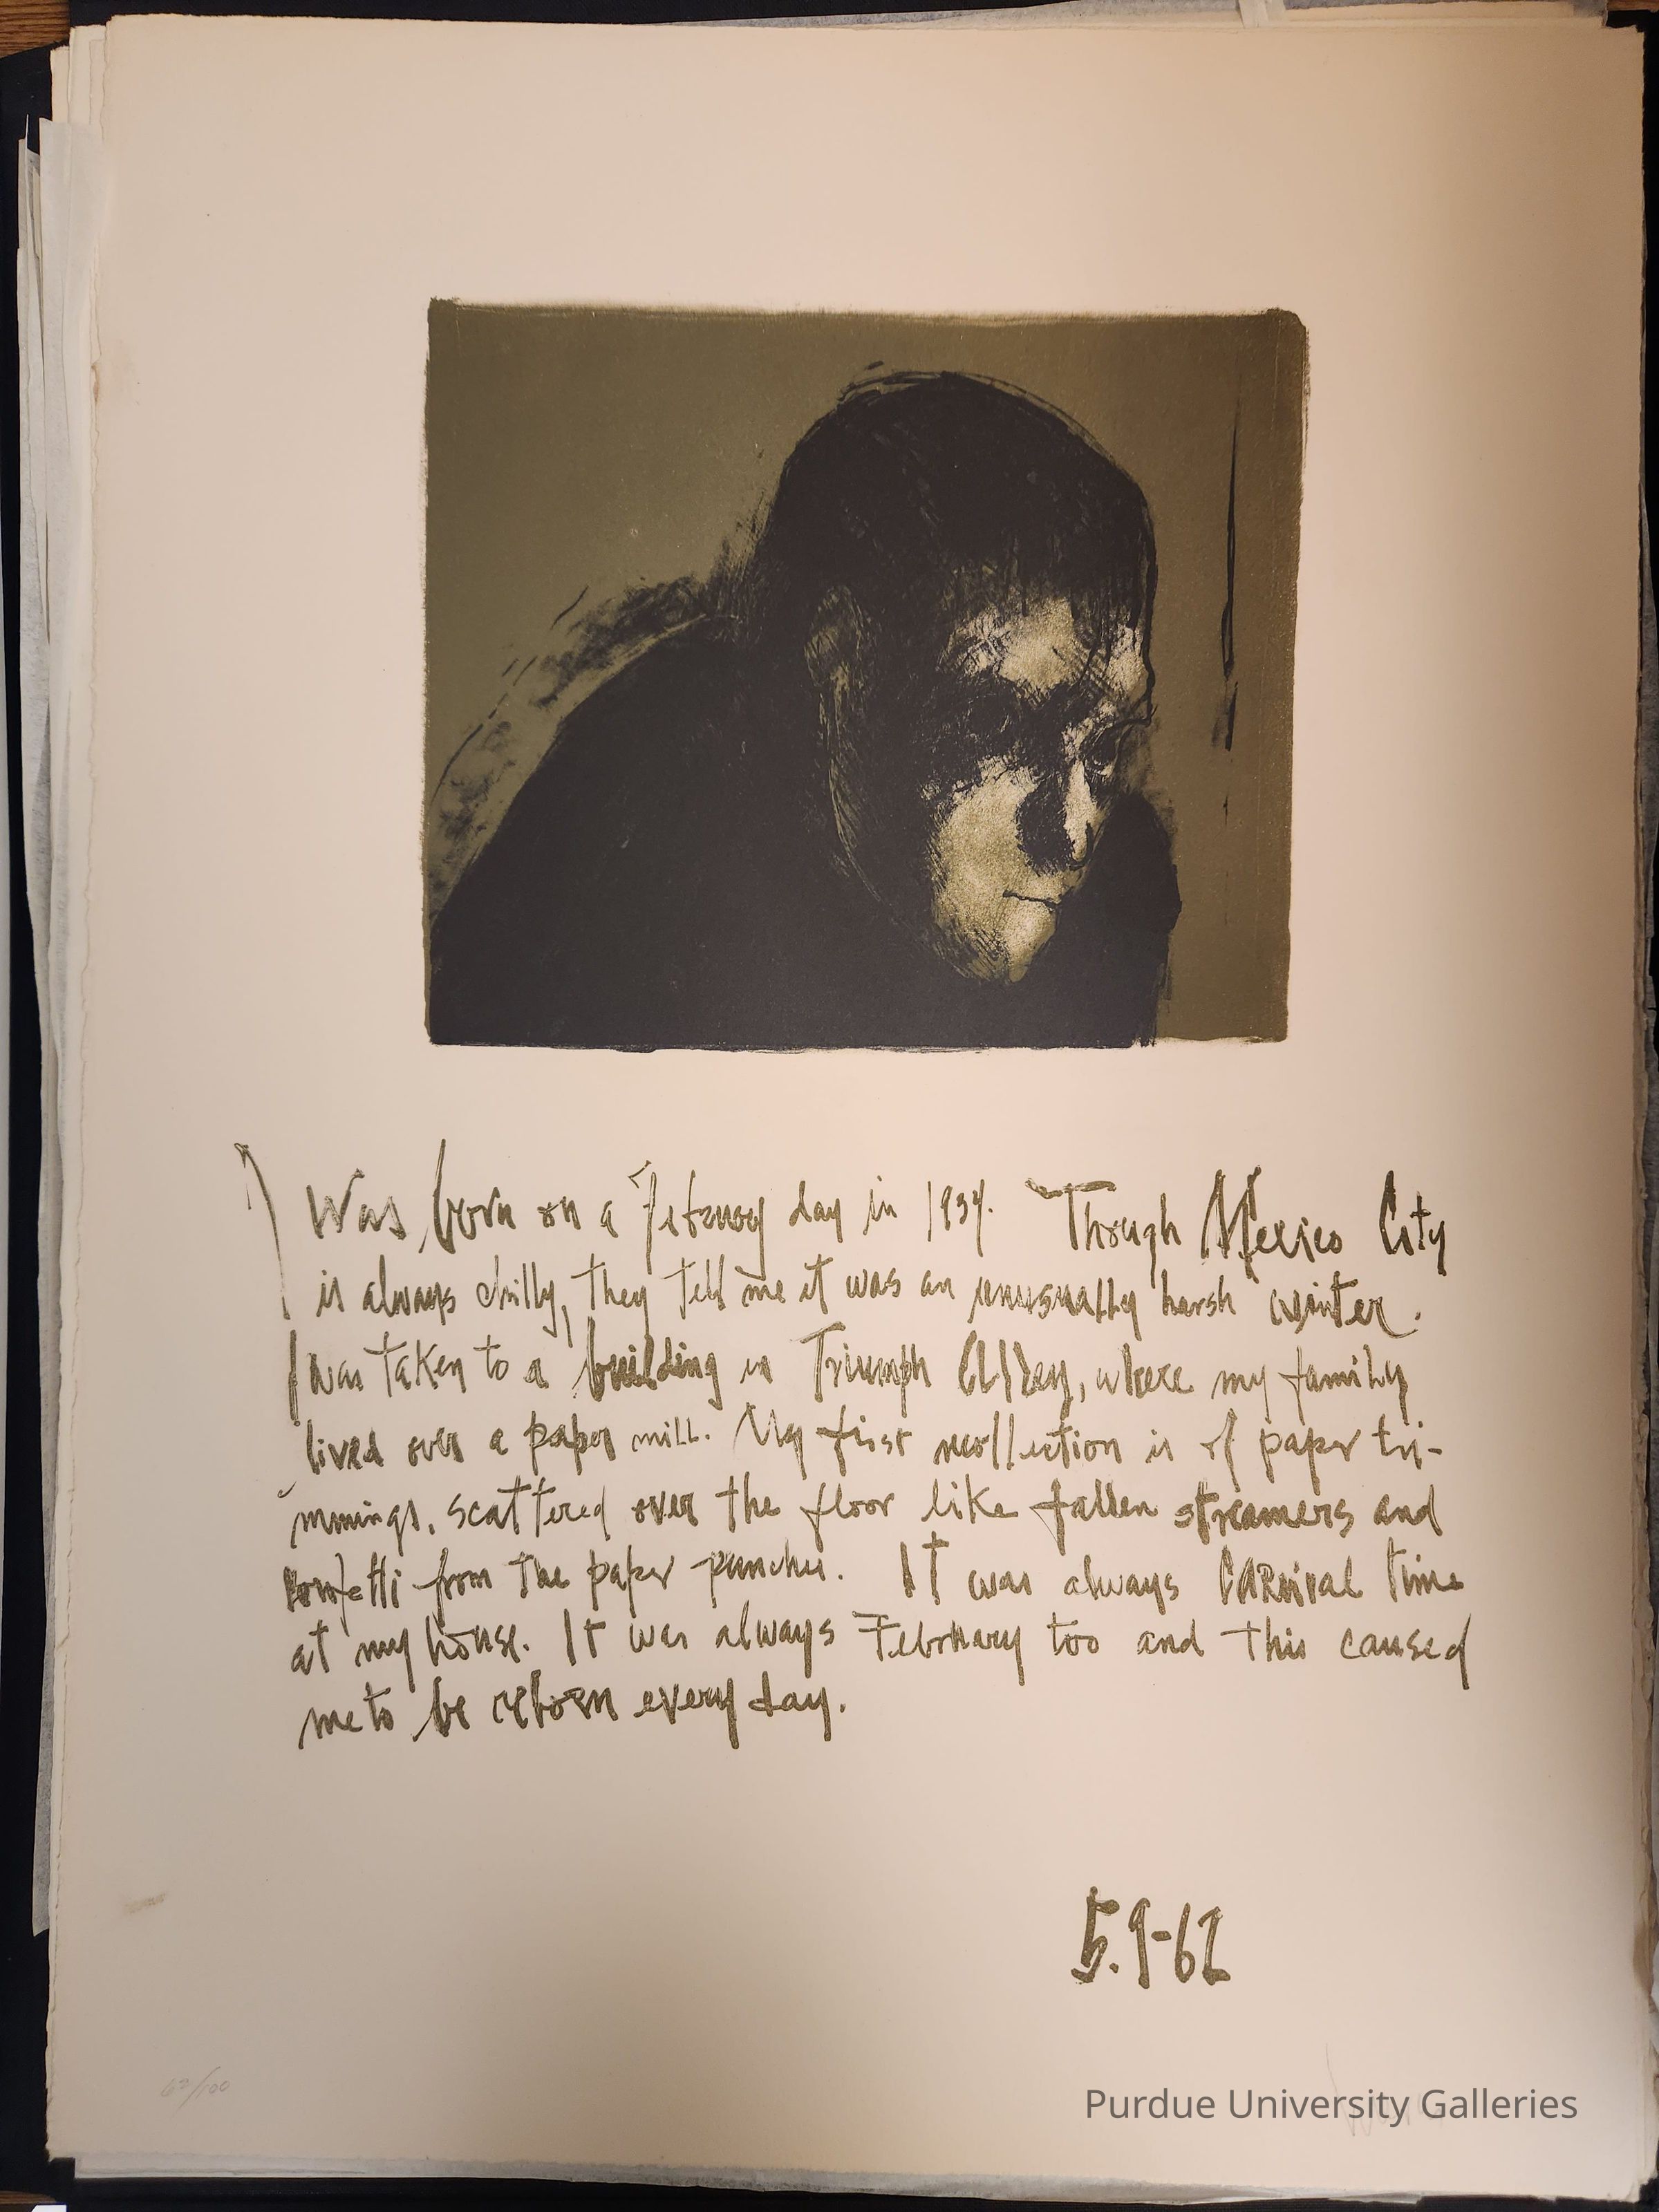 I Was born on a February day in 1934. Though Mexico City
is always chilly, they tell me it was an unusually harsh winter.
I was taken to a building in Triumph Alley, where my family
lived over a paper mill. My first recollection is of paper tri-
mmings, scattered over the floor like fallen streamers and
konfetti from the paper punches. It was always CARnival time
at my house. It was always February too and this caused
me to be reborn every day.
5.9-62
62/100
Purdue University Galleries